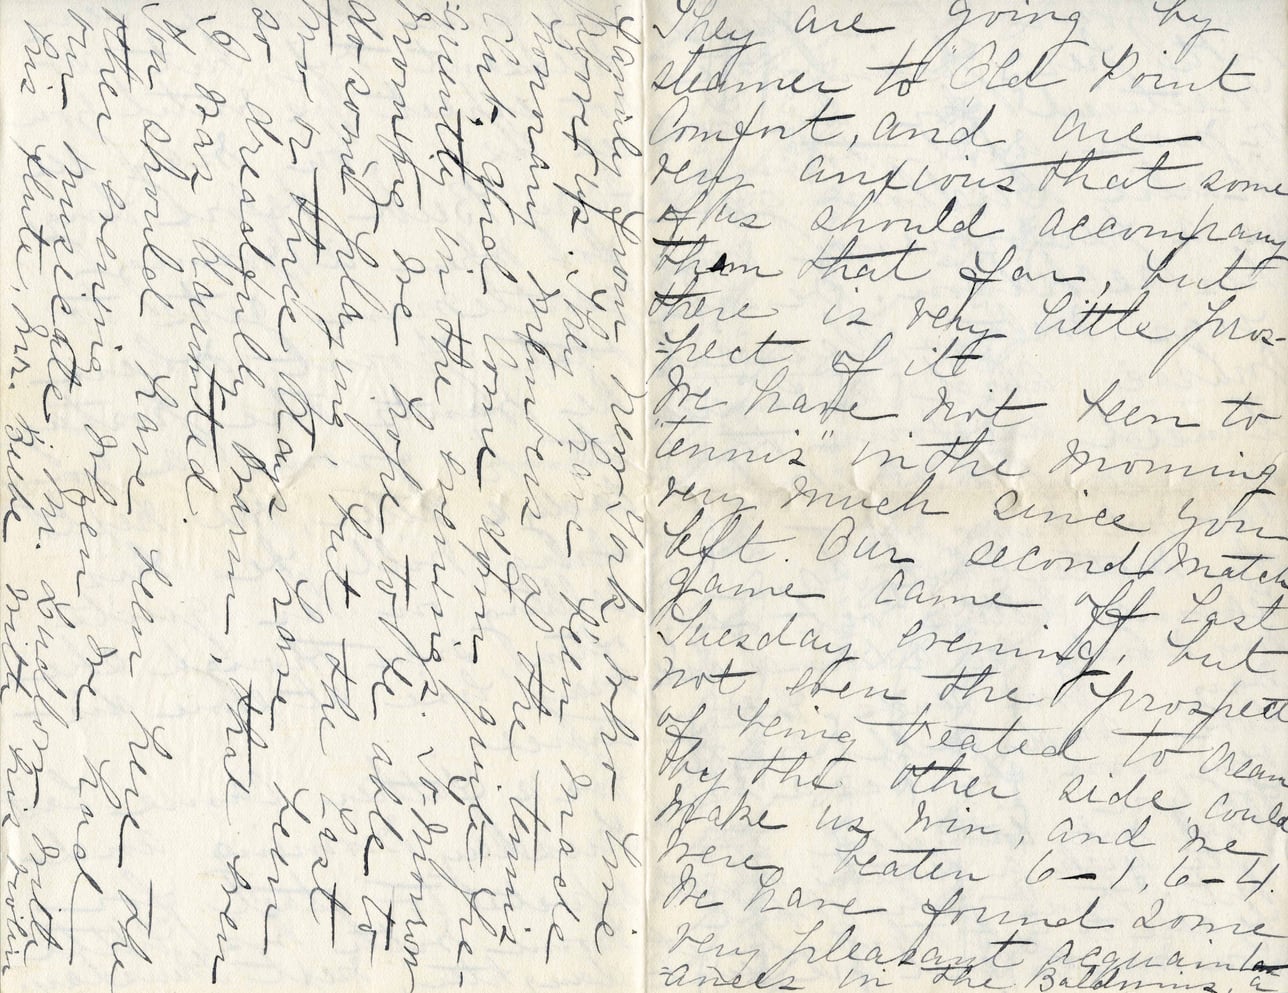 They are going by
steamer to Old Point
Comfort, and are
very anxious that some
of us should accompany
them that far, but
there is very little pros-
=pect of it
We have not been to
"tennis" in the morning
very much since you
left. Our second match
game came off last
Tuesday evening, but
not even the prospect
of being treated to cream
by the other side, could
make us win, and we
were beaten 6-1, 6-4.
We have found some
very pleasant acquaint
=ances in the Baldwins, a
family from New York who live
above us. They have been made
honorary members of the tennis
Club, and come down quite fre-
=quently in the evenings. To-morrow
morning we hope to be able to
do some playing, but the last
two or three days have been
so dreadfully warm, that even
I was daunted.
You should have been here the
other evening when we had
our musicale, Mr. Sudborn with
his flute, Mr. Beebe with his violin